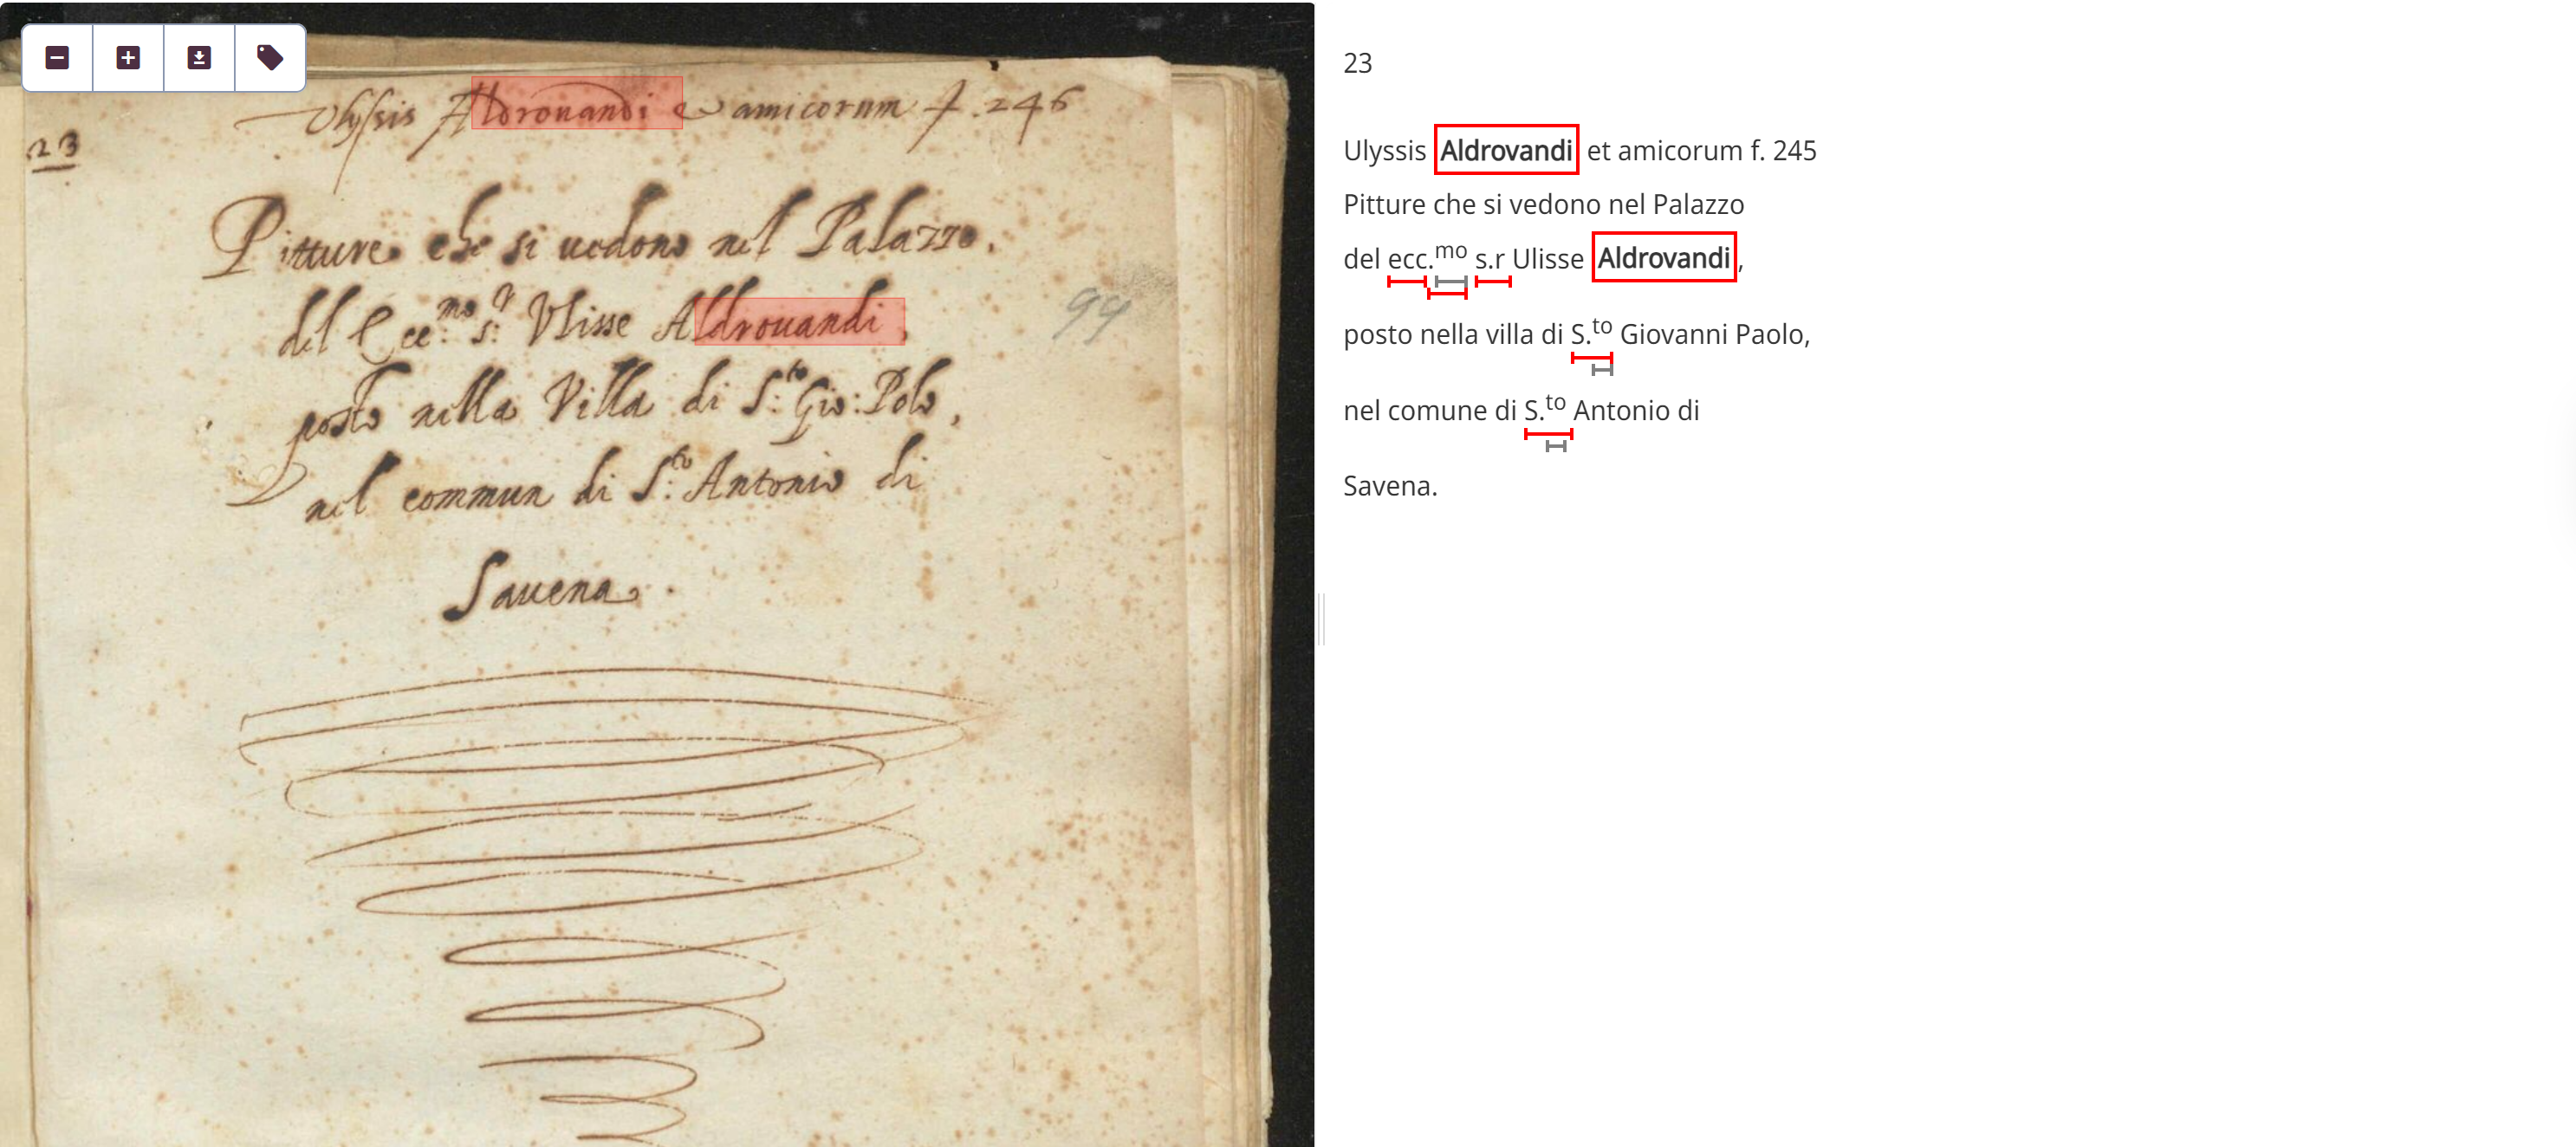 Ulyssis Aldrouandi et amicorum f. 246
23
Pitture che si uedono nel Palazzo.
del Ecc:mo s:r Vlisse Aldrouandi,
99
posto nella Villa di S:to Gio: Polo,
nel commun di S:to Antonio di
Sauena.
23
Ulyssis Aldrovandi et amicorum f. 245
Pitture che si vedono nel Palazzo
del ecc.mo s.r Ulisse Aldrovandi,
posto nella villa di S.to Giovanni Paolo,
nel comune di S.to Antonio di
Savena.